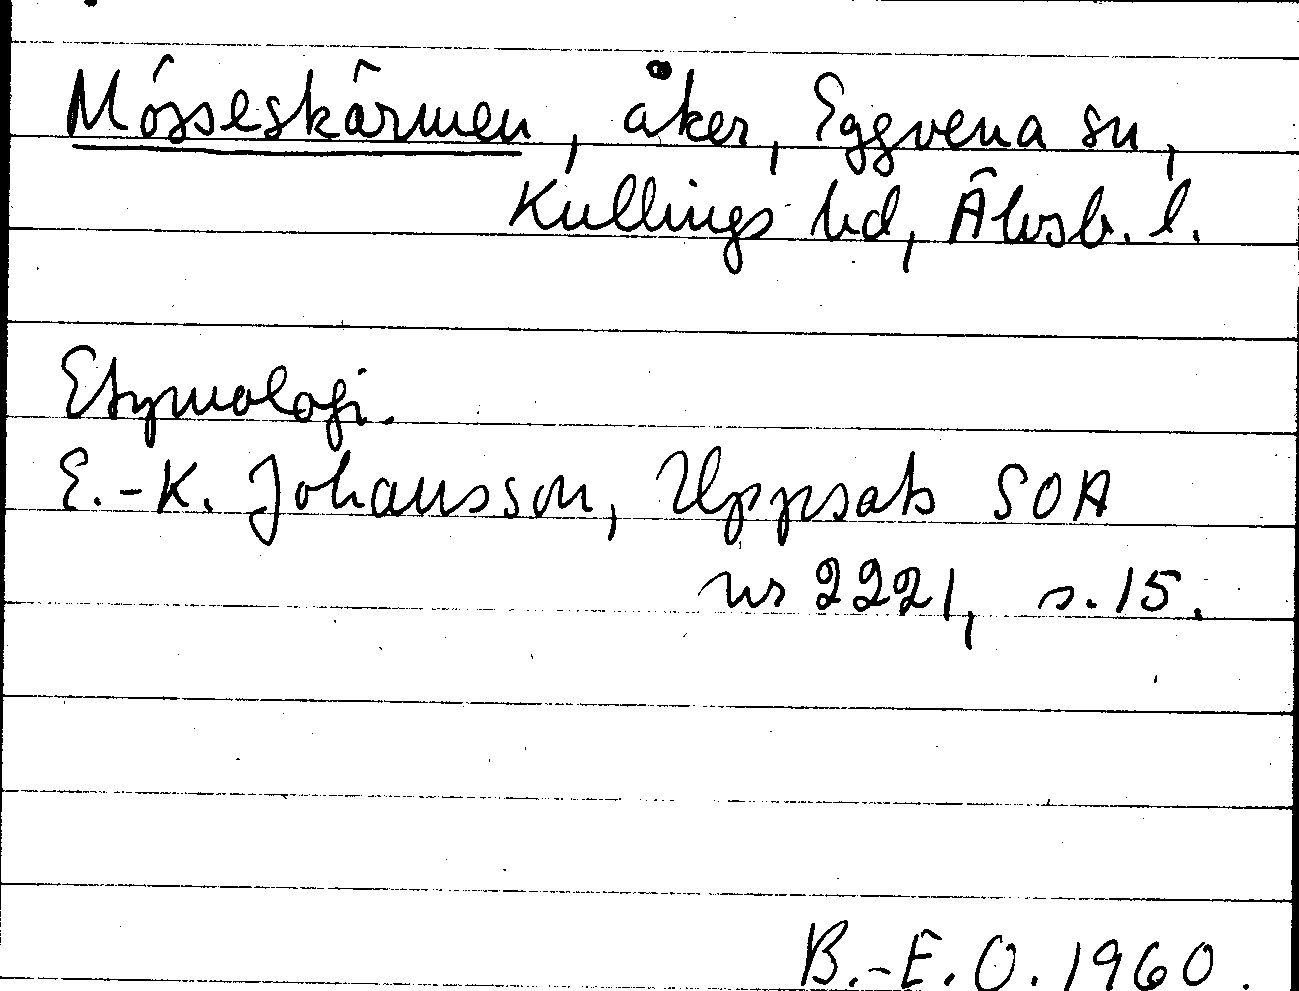 Mösseskärmen, åker, Eggvena sn,
Kullings hd, Älvsb. l.
Etymologi.
E.-K. Johansson, Uppsats SOA
nr 2221, s. 15.
B.-E. O. 1960.